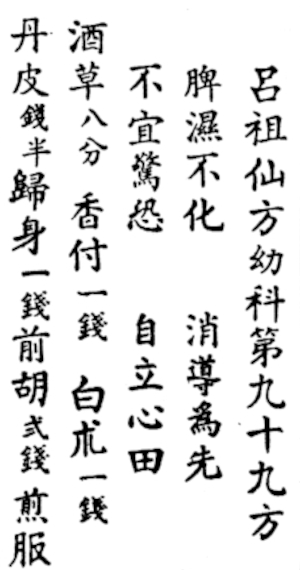 呂祖仙方幼科第九十九方
脾濕不化 消導為先
不宜驚恐 自立心田
酒草八分 香付一錢 白朮一錢
丹皮錢半歸身一錢前胡弍錢煎服